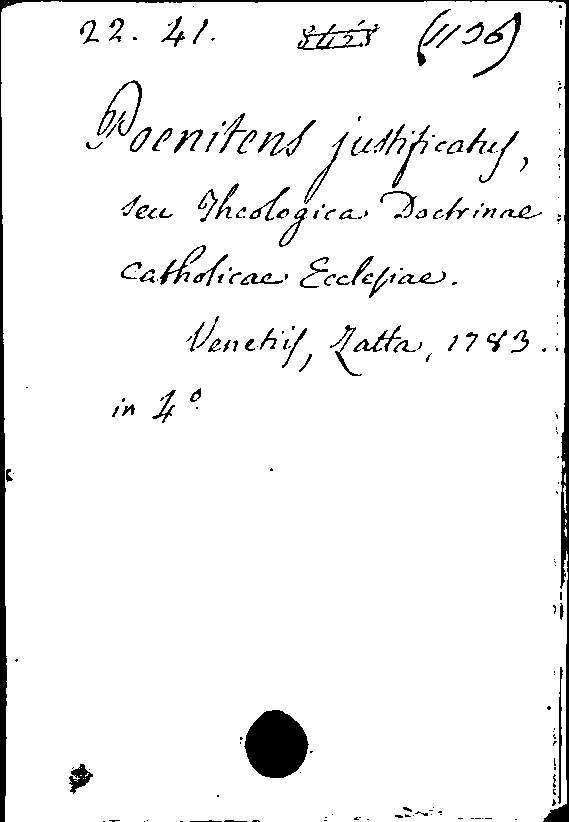 22. 41. (1136)
Poenitens justificatus,
seu Theologica Doctrinae
Catholicae Ecclesiae.
Venetiis, Zatta, 1783.
in 4º